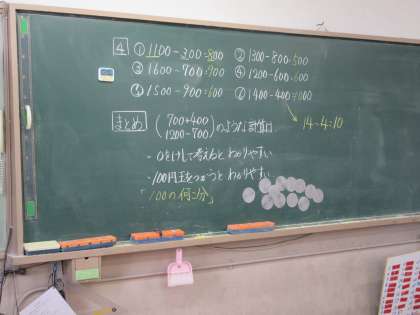 4 ① 1100-300=800 ② 1300-800=500
③ 1600-700=900 ④ 1200-600=600
⑤ 1500-900=600 ⑥ 1400-400=1000
14-4=10
まとめ (700+400 1200-700) のような計算は、
・0をけして考えるとわかりやすい
・100円玉をつかうとわかりやすい
「100の何こ分」